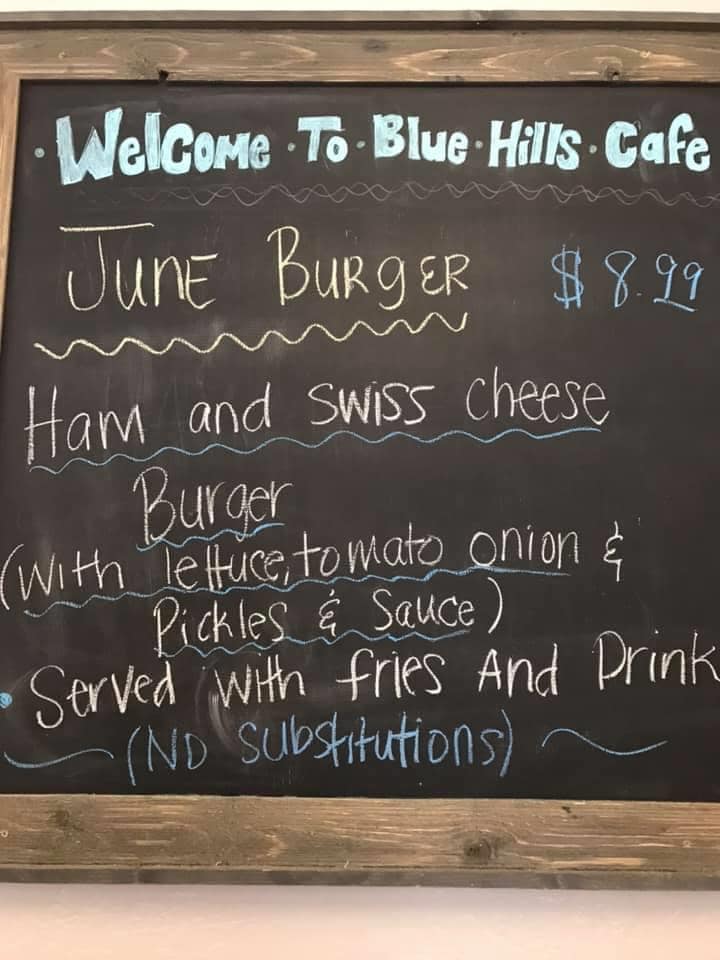 · Welcome · To · Blue · Hills · Cafe
June Burger $8.99
Ham and swiss cheese
Burger
(with lettuce, tomato onion &
Pickles & Sauce)
• Served with fries And Drink
(No substitutions)